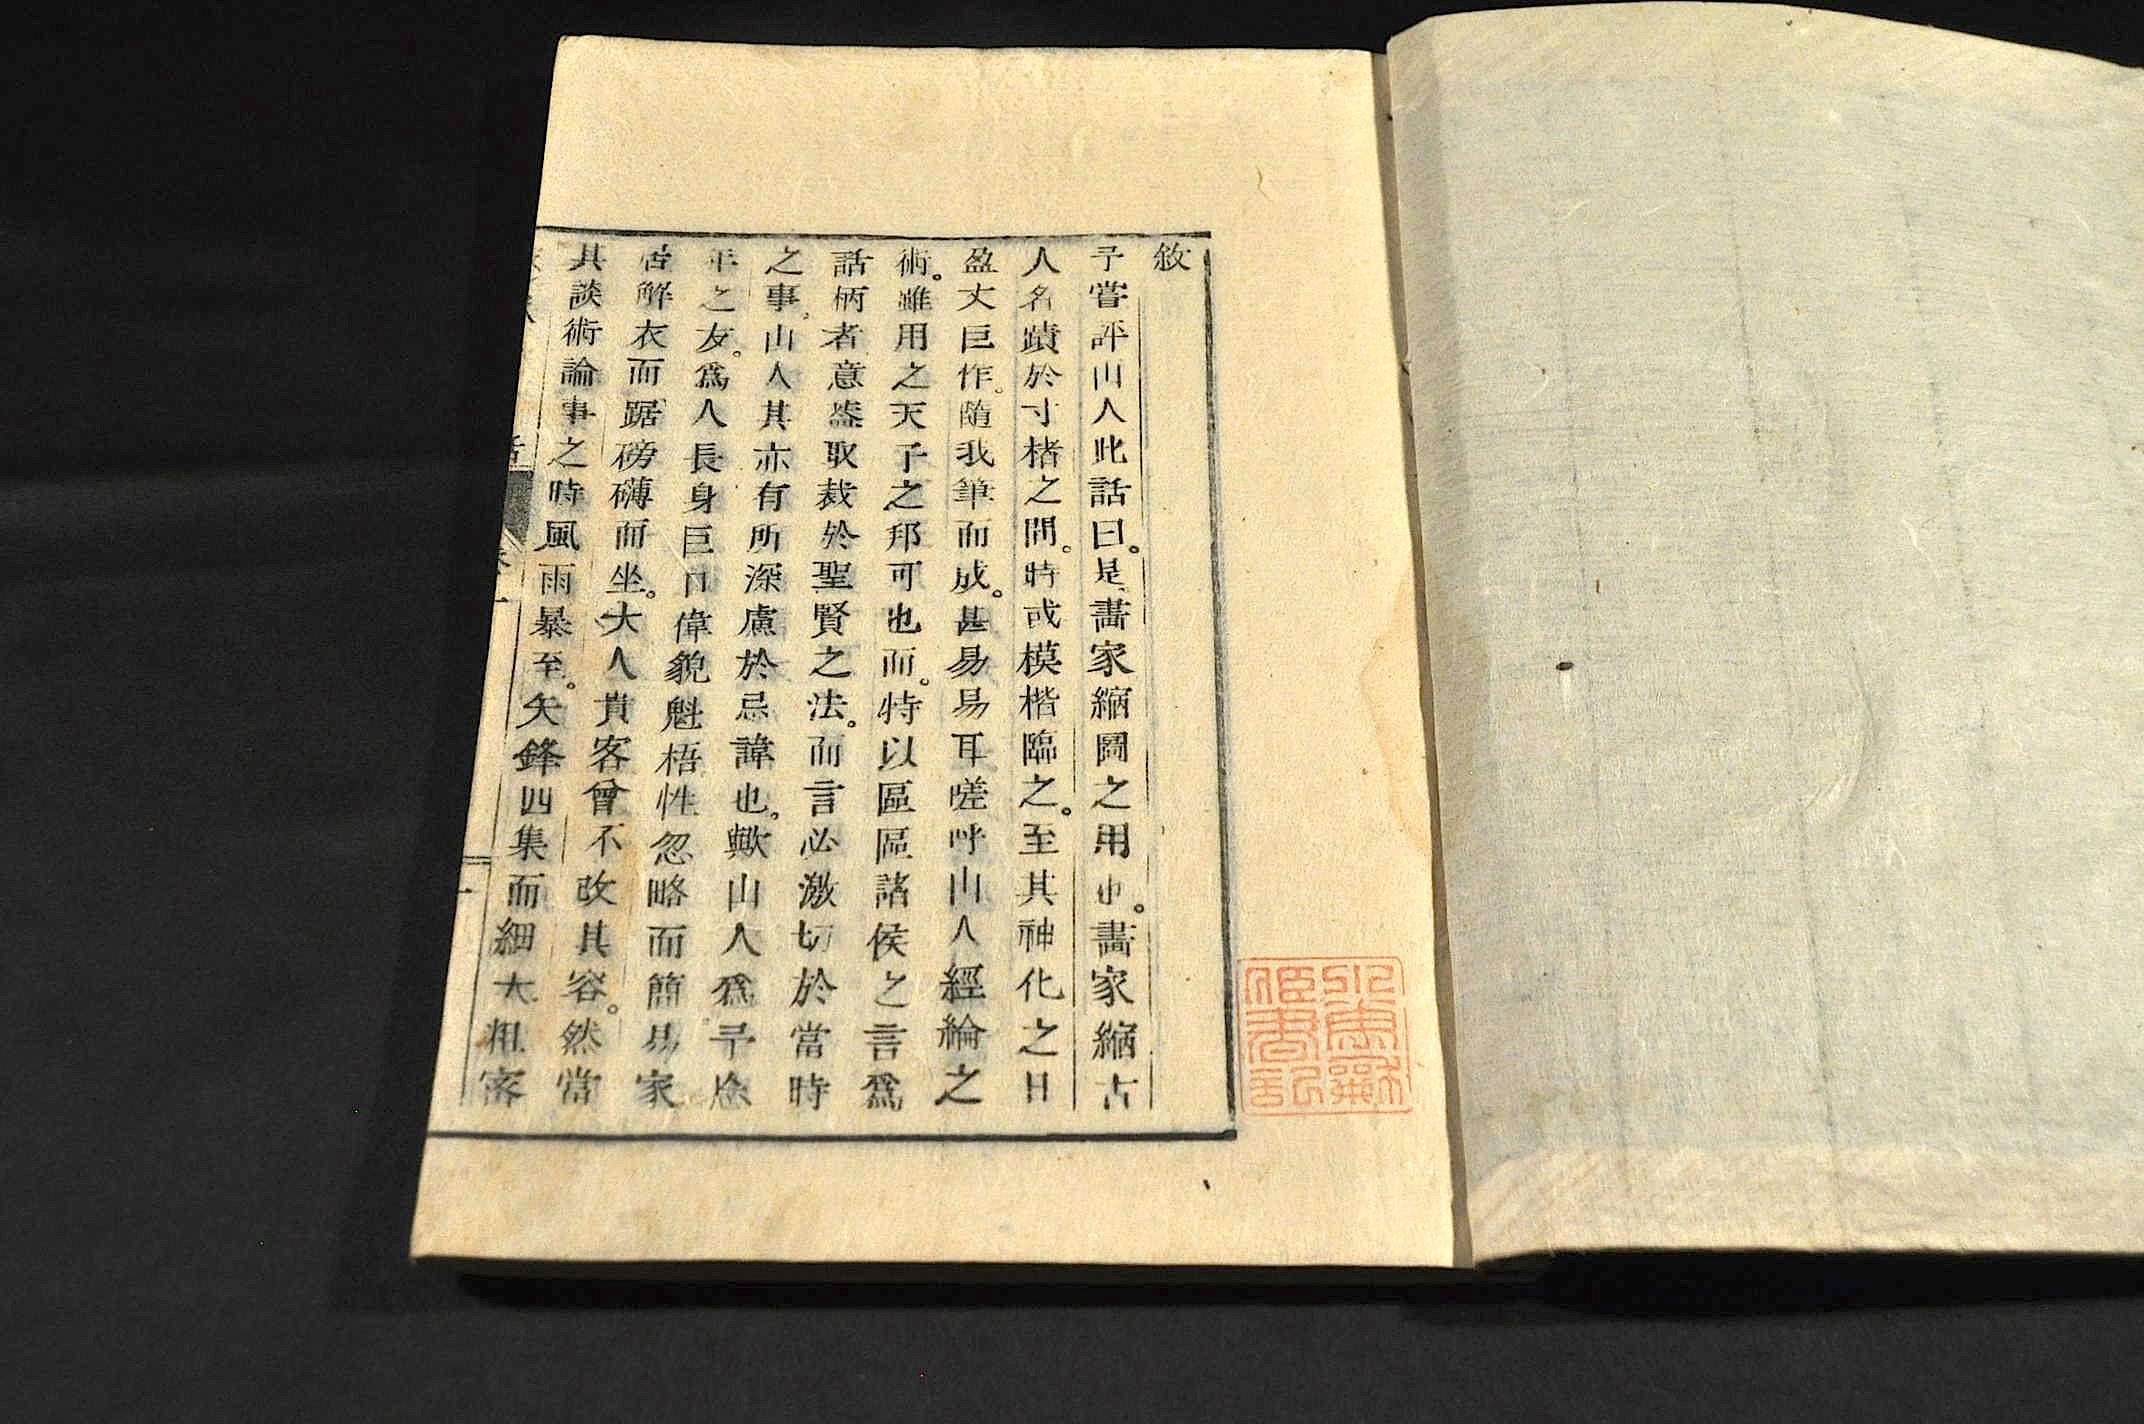 敘
予嘗評山人此話曰。是畫家縮圖之用也。畫家縮古
人名蹟於寸楮之間。時或模楷臨之。至其神化之日
盈丈巨作。隨我筆而成。甚易易耳嗟呼山人經綸之
術。雖用之天子之邦可也而。特以區區諸侯之言爲
話柄者意蓋取裁於聖賢之法。而言必激切於當時
之事。山人其亦有所深慮於忌諱也。歟山人爲予
年之友。爲人長身巨口偉貌魁梧性忽略而簡易家
居解衣而踞磅礴而坐。大人貴客曾不改其容。然當
其談術論事之時風雨暴至。矢鋒四集而細大粗密